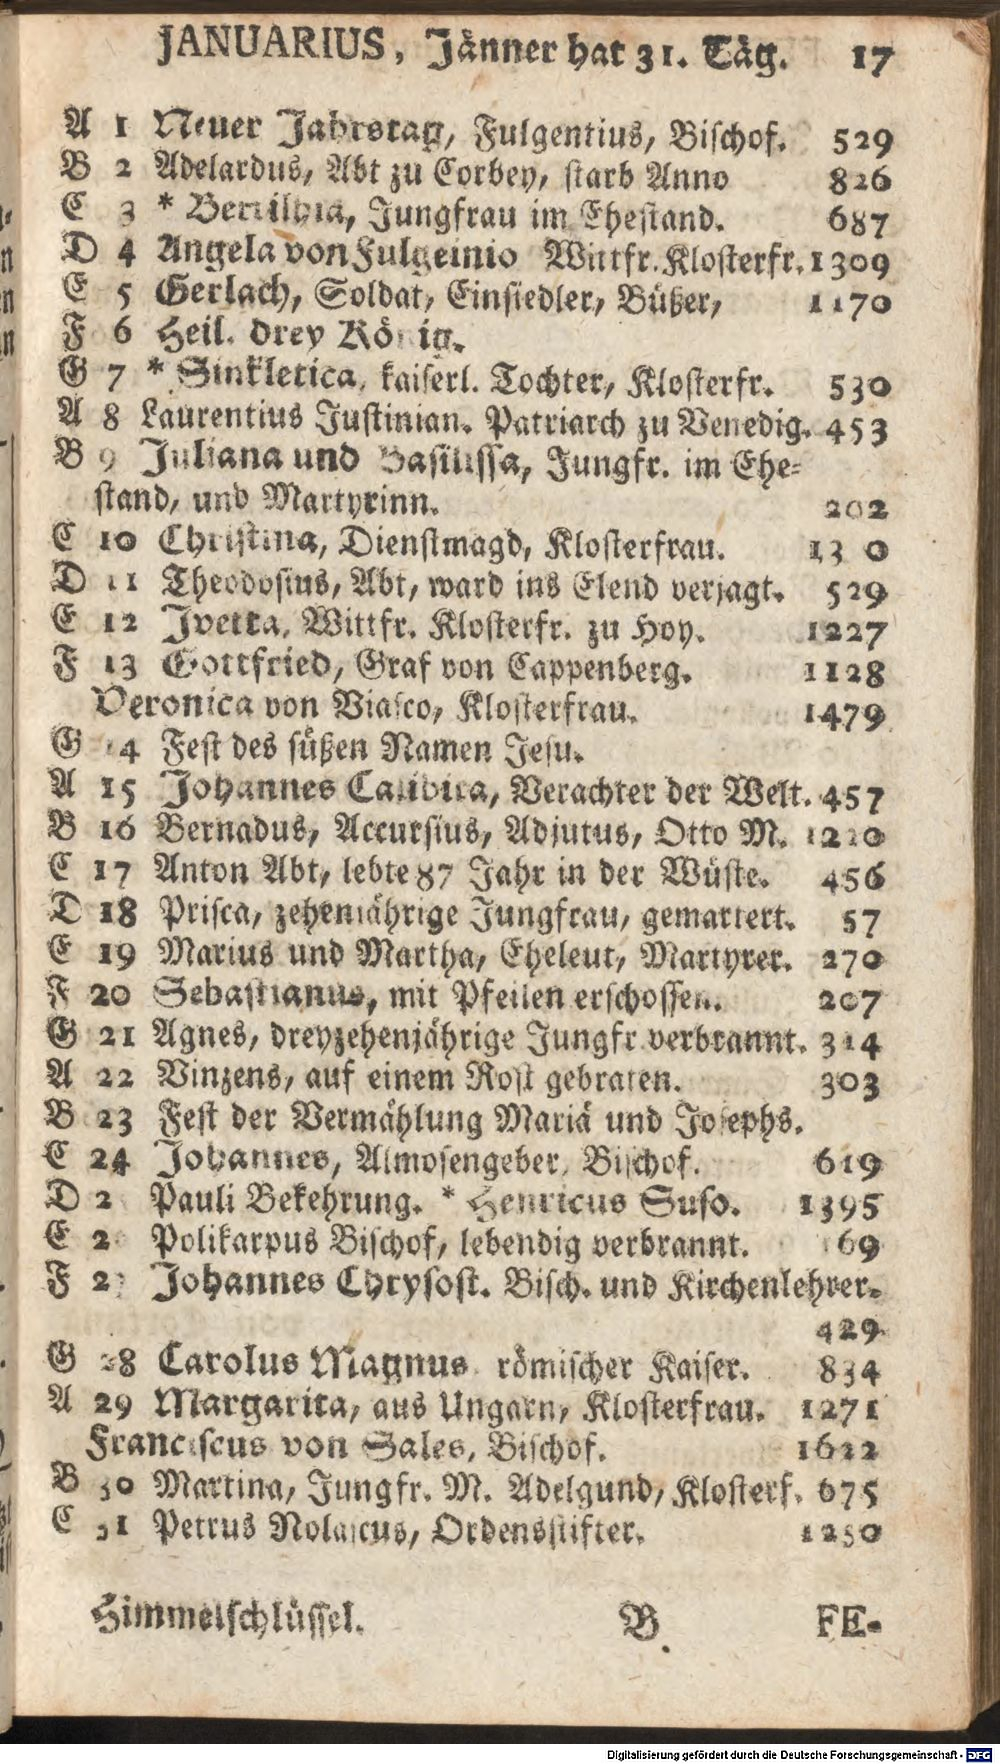 JANUARIUS, Jänner hat 31. Täg. 17
A 1 Neuer Jahrstag, Fulgentius, Bischof. 529
B 2 Adelardus, Abt zu Corbey, starb Anno 826
C 3 * Bertilvia, Jungfrau im Ehestand. 687
D 4 Angela von Fulgeinio Wittfr. Klosterfr. 1309
E 5 Gerlach, Soldat, Einsiedler, Büßer, 1170
F 6 Heil. drey König.
G 7 * Sinkletica, kaiserl. Tochter, Klosterfr. 530
A 8 Laurentius Justinian. Patriarch zu Venedig. 453
B 9 Juliana und Basilissa, Jungfr. im Ehe=
stand, und Martyrinn. 202
C 10 Christina, Dienstmagd, Klosterfrau.
D 11 Theodosius, Abt, ward ins Elend verjagt. 529
E 12 Ivetta, Wittfr. Klosterfr. zu Hoy. 1227
F 13 Gottfried, Graf von Cappenberg. 1128
Veronica von Viasco, Klosterfrau. 1479
G 14 Fest des süßen Namen Jesu.
A 15 Johannes Calibita, Verachter der Welt. 457
B 16 Bernadus, Accursius, Adjutus, Otto M. 1220
C 17 Anton Abt, lebte 87 Jahr in der Wüste. 456
D 18 Prisca, zehenjährige Jungfrau, gemartert. 57
E 19 Marius und Martha, Eheleut, Martyrer. 270
F 20 Sebastianus, mit Pfeilen erschossen. 207
G 21 Agnes, dreyzehenjährige Jungfr. verbrannt. 314
A 22 Vinzens, auf einem Rost gebraten. 303
B 23 Fest der Vermählung Mariä und Josephs.
C 24 Johannes, Almosengeber, Bischof. 619
D 2 Pauli Bekehrung. * Henricus Suso. 1395
E 2 Polikarpus Bischof, lebendig verbrannt. 169
F 27 Johannes Chrysost. Bisch. und Kirchenlehrer.
429
G 28 Carolus Magnus römischer Kaiser. 834
A 29 Margarita, aus Ungarn, Klosterfrau. 1271
Franciscus von Sales, Bischof. 1622
B 30 Martina, Jungfr. M. Adelgund, Klosterf. 675
C 31 Petrus Nolascus, Ordensstifter. 1250
Himmelschlüssel. B FE-
Digitalisierung gefördert durch die Deutsche Forschungsgemeinschaft - DFG